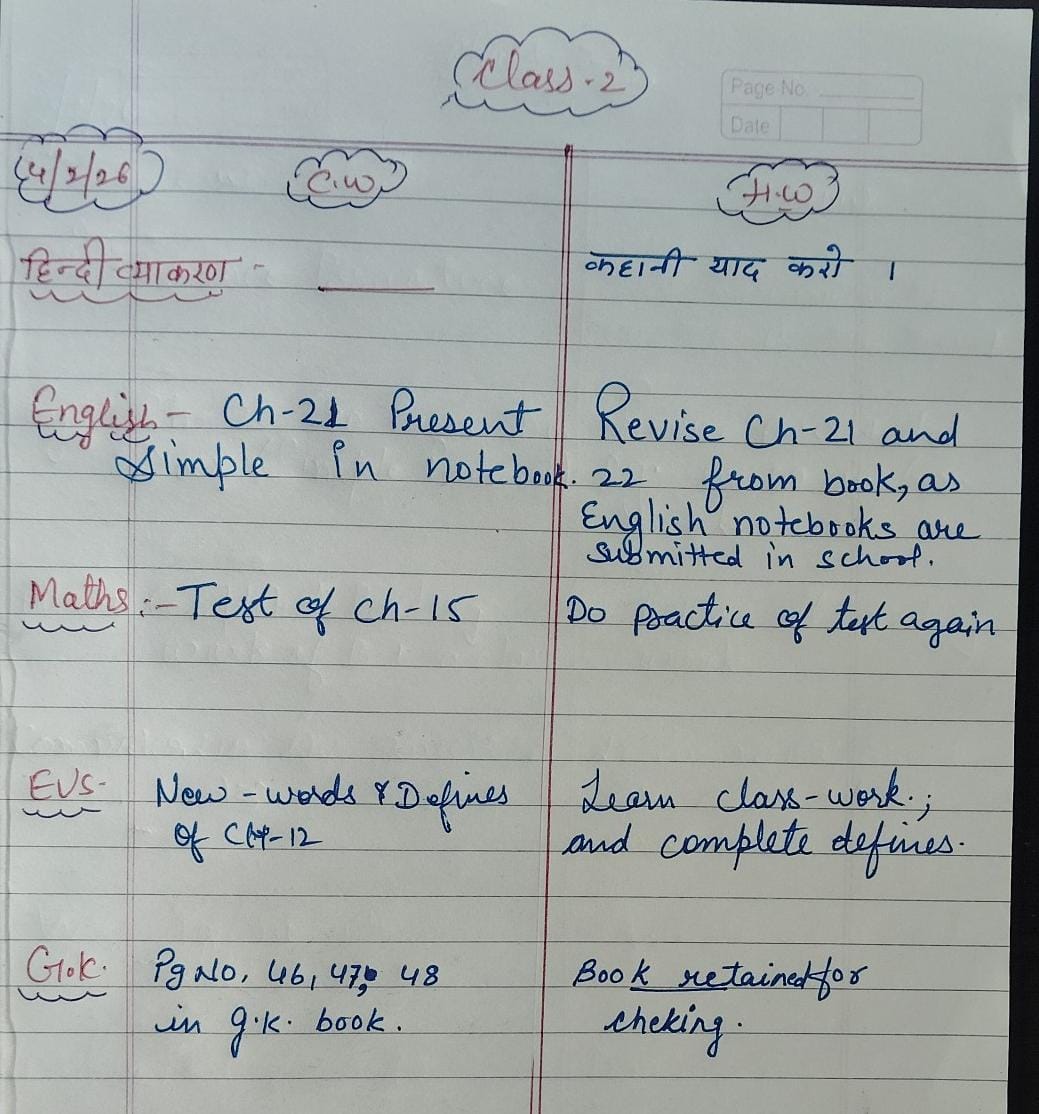 Class-2
Page No.
Date
4/2/26
C.W
H.W
हिन्दी व्याकरण -
कहानी याद करो ।
English - Ch-21 Present
Simple in notebook.
Revise Ch-21 and
22 from book, as
English notebooks are
submitted in school.
Maths :- Test of Ch-15
Do practice of test again
EVS- New-words & Defines
of Chp-12
Learn class-work.;
and complete defines.
G.K. Pg No, 46, 47, 48
in g.k. book.
Book retained for
cheking.